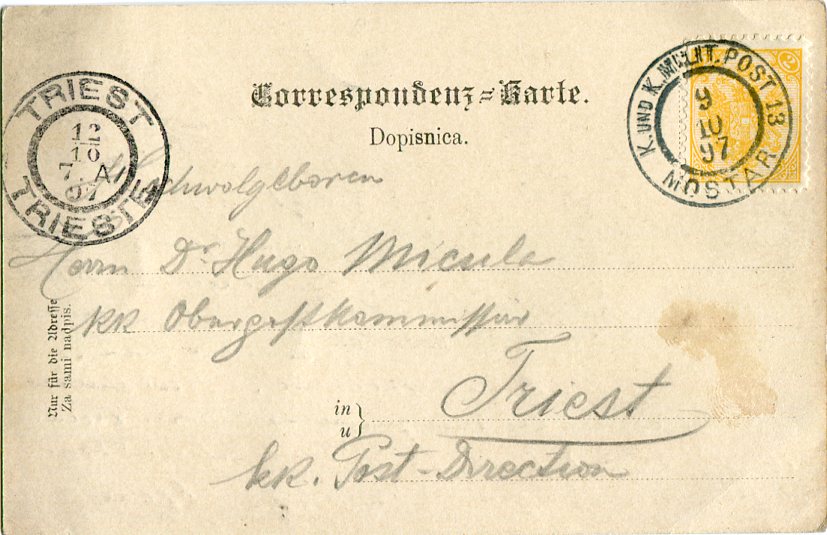 Correspondenz-Karte.
Dopisnica.
K. UND K. MILIT. POST 13
9
10
97
MOSTAR
2
TRIEST
12
10
7. A
97
TRIEST
Hochwolgeboren
Herrn Dr Hugo Micula
kk Oberpostkommissär
in
u
Triest
kk. Post-Direction
Nur für die Adresse
Za sami nadpis.